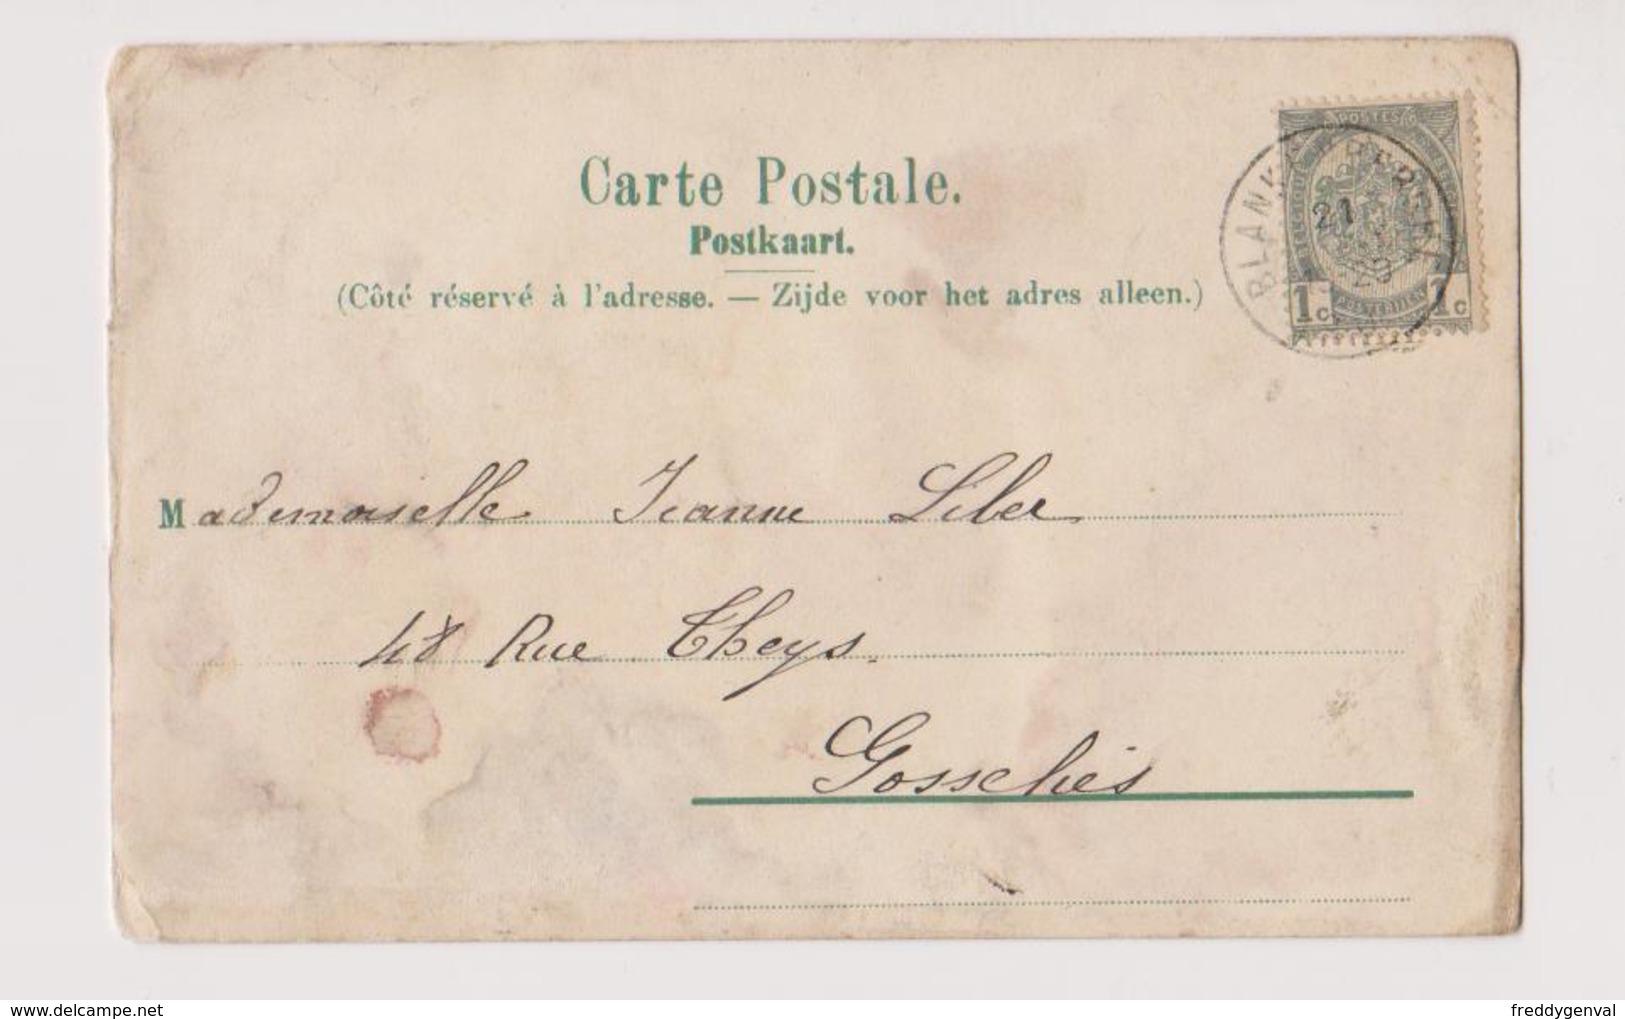 Carte Postale.
Postkaart.
(Côté réservé à l'adresse. — Zijde voor het adres alleen.)
POSTES
BLANK
21
1c 1c
Mademoiselle Jeanne Liber
48 Rue Theys.
Gosselies
delcampe.net
freddygenval